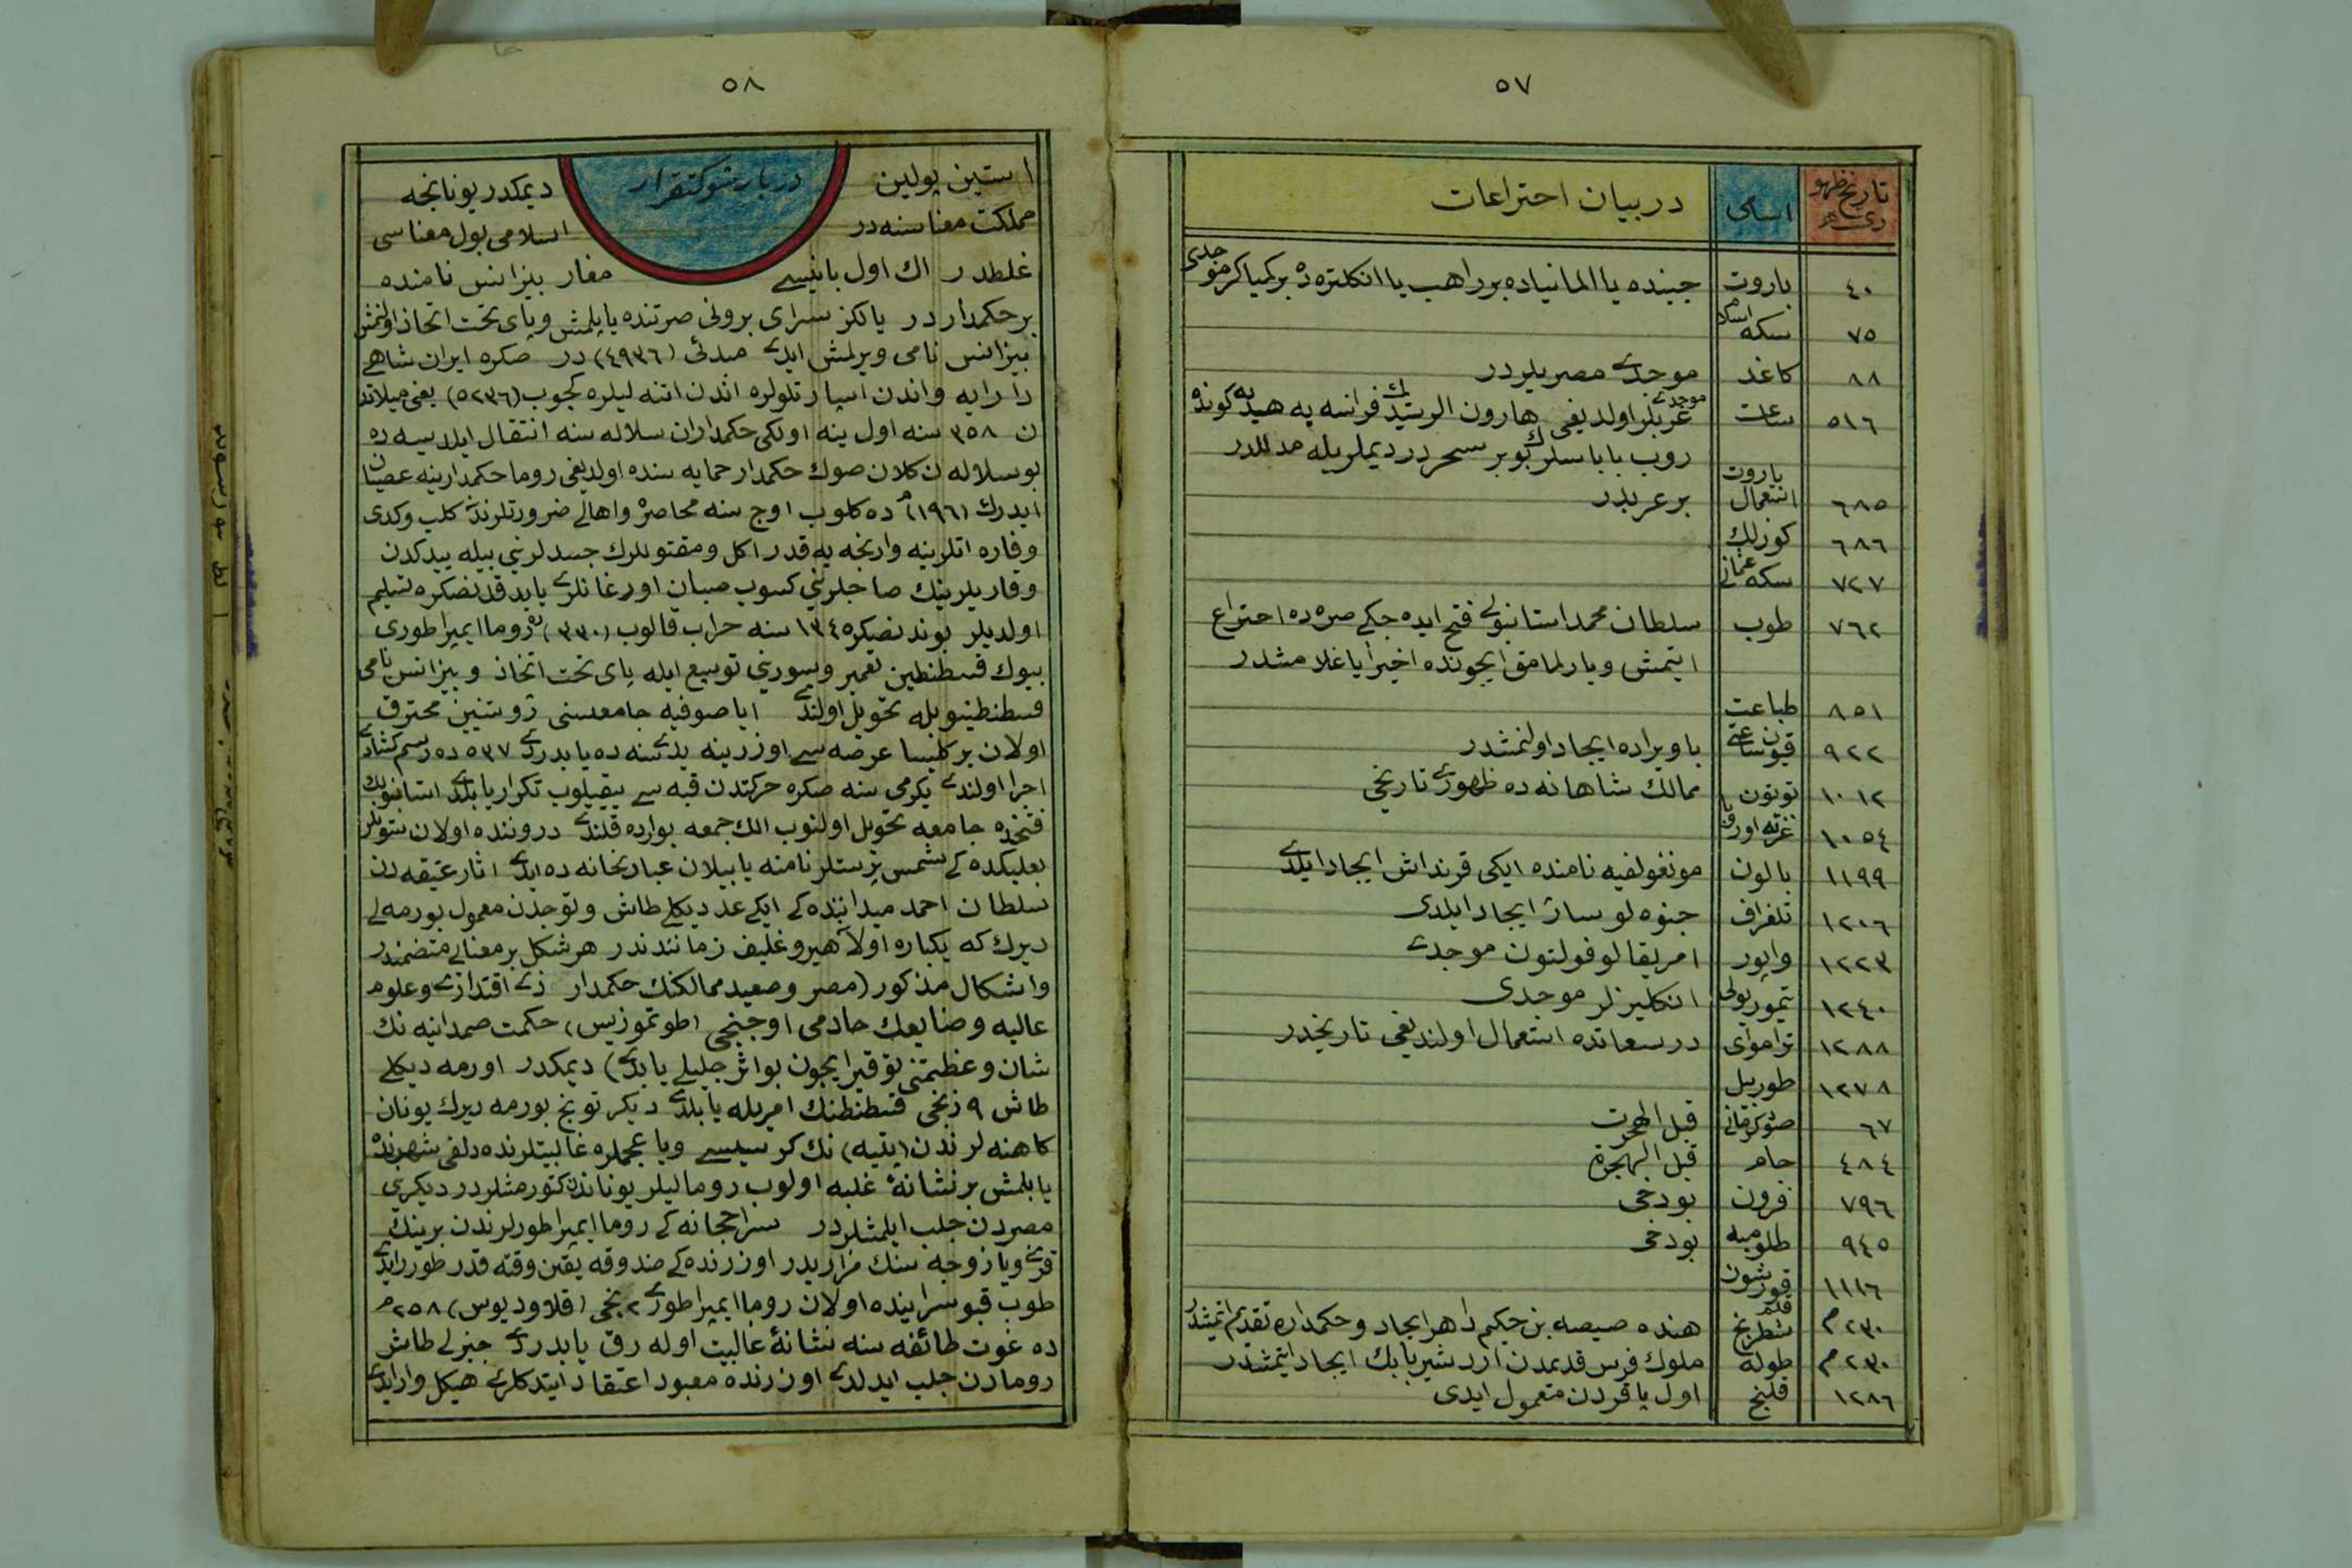 ٥٧
تاريخ ظهور
اسامى
در بيان احتراعات
٤٠ باروت جينده يا المانياده بر راهب يا انكلتره ده بر كميا كر موجدى
٧٥ سكه اسلام
٨٨ كاغد موجدى مصريلردر
٥١٦ ساعت موجدى عربلر اولديغى هارون الرشيدك فرانسه يه هديه كوندر
روب بابا سلر بوبر سحردر ديملريله
٦٨٥ باروت استعمال بر عربدر
٦٨٦ كوزلك
٧٢٧ سكه عثمانى
٧٦٢ طوب سلطان محمد استانبولى فتح ايده جكى صره ده احتراع
ايتمش و يارلمامق ايچونده اخيرا ياغلامشدر
٨٥١ طباعت
٩٢٢ قيون ساعتى باويراده ايجاد اولنمشدر
١٠١٢ توتون ممالك شاهانه ده ظهورى تاريخى
١٠٥٤ غزته اوراق
١١٩٩ بالون مونغولفيه نامنده ايكى قرنداش ايجاد ايلدى
١٢٠٦ تلغراف جنوه لو ساژ ايجاد ايلدى
١٢٢٣ واپور امريقالو فولتون موجدى
١٢٤٠ تيمور يولى انكليزلر موجدى
١٢٨٨ تراموای درسعاتده استعمال اولنديغى تاريخدر
١٢٧٨ طورپيل
٦٧ قبل الهجرت
٤٨٤ جام قبل الهجرة
٧٩٦ فرون بودخى
٩٤٥ طلومبه بودخى
١١١٦ قورشون قلم
٢٣٠م شطرنج هنده صيصه بن حكيم داهر ايجاد و حكمداره تقديم ايتمشدر
٢٣٠م طوله ملوك فرس قديمدن اردشير بابك ايجاد ايتمشدر
١٢٨٦ قلنج اول ياقردن متعمول ايدى
٥٨
دربار شوكتقرار
استين پولين ديمكدر يونانجه
مملكت معناسنه در اسلامى بول معناسى
غلطدر اك اول بانيسى مغار بيزانس نامنده
بر حكمداردر يالكز سراى برونى صرتنده ياپلمش و پاى تخت اتخاذ اولنمش
بيزانس نامى ويرلمش ايدى مبدئى (٤٩٣٦) در صكره ايران شاهى
دارايه و اندن اسپارتلولره اندن اتنه ليلره كچوب (٥٢٣٦) يعنى ميلاتد
ن ٣٥٨ سنه اول ينه اولكى حكمداران سلاله سنه انتقال ايلديسه ده
بو سلاله دن كلان صوك حكمدار حمايه سنده اولديغى روما حكمدارينه عصيان
ايدرك (١٩٦م) ده كلوب اوج سنه محاصره و اهالى ضرورتلرندن كلب و كدى
و فاره اتلرينه وارنجه يه قدر اكل و مقتوللرك جسدلرينى بيله ييدكدن
و قاريلرينك صاجلرينى كسوب صپان اورغانلرى يابدقدنصكره تسليم
اولديلر بوندنصكره ١٣٤ سنه حراب قالوب (٣٣٠) ده روما ايمپراطورى
بيوك قسطنطين تعمير و سورينى توسيع ايله پاى تخت اتخاذ و بيزانس نامى
قسطنطينيو بله تحويل اولندى اياصوفيه جامعسنى ژوستنين محترق
اولان بر كليسا عرصه سى اوزرينه يدى سنه ده يابدردى ٥٣٧ ده رسم كشادى
اجرا اولندى يكرمى سنه صكره حركتدن قبه سى ييقيلوب تكرار يابلدى استانبولك
فتحنده جامعه تحويل اولنوب الك جمعه بوارده قلندى دروننده اولان ستونلر
بعلبكده كى شمس پرستلر نامنه يابيلان عبادتخانه ده ايدى اثار عتيقه دن
سلطان احمد ميداننده كى ايكى عدد ديكلى طاش و توجدن معمول بورمه لى
ديرك كه يكپاره اولآ هيروغليف زماننددر هر شكل بر معنايى متضمندر
و اشكال مذكور (مصر و صعيد ممالكنك حكمدار ذى اقتدارى و علوم
عاليه و صنايعك حادمى اوجنجى (طوتموزيس) حكمت صمدانيه نك
شان و عظمتنى توقير ايچون بو اثر جليلى يابدى) ديمكدر اورمه ديكلى
طاش ٩ زنجى قسطنطنك امريله يابلدى ديكر تونج بورمه ديرك يونان
كاهنه لرندن (پتيه) نك كرسيسى ويا عجملره غالبيتلرنده دلفى شهرنده
يابلمش بر نشانهٔ غلبه اولوب روماليلر يوناندن كتورمشلردر ديكرى
مصردن جلب ايلمشلردر سراجخانه كى روما ايمپراطورلرندن برينك
قزى ويا زوجه سنك مزاريدر اوزرنده كى صندوقه يقين وقته قدر طوررايدى
طوب قپو سراينده اولان روما ايمپراطورى ٢ نجى (قلاوديوس) ٢٥٨م
ده غوت طائفه سنه نشانهٔ غالبيت اوله رق يابدردى جنزلى طاش
رومادن جلب ايدلدى اوزرنده معبود اعتقاد ايتدكلرى هيكل وار ايدى